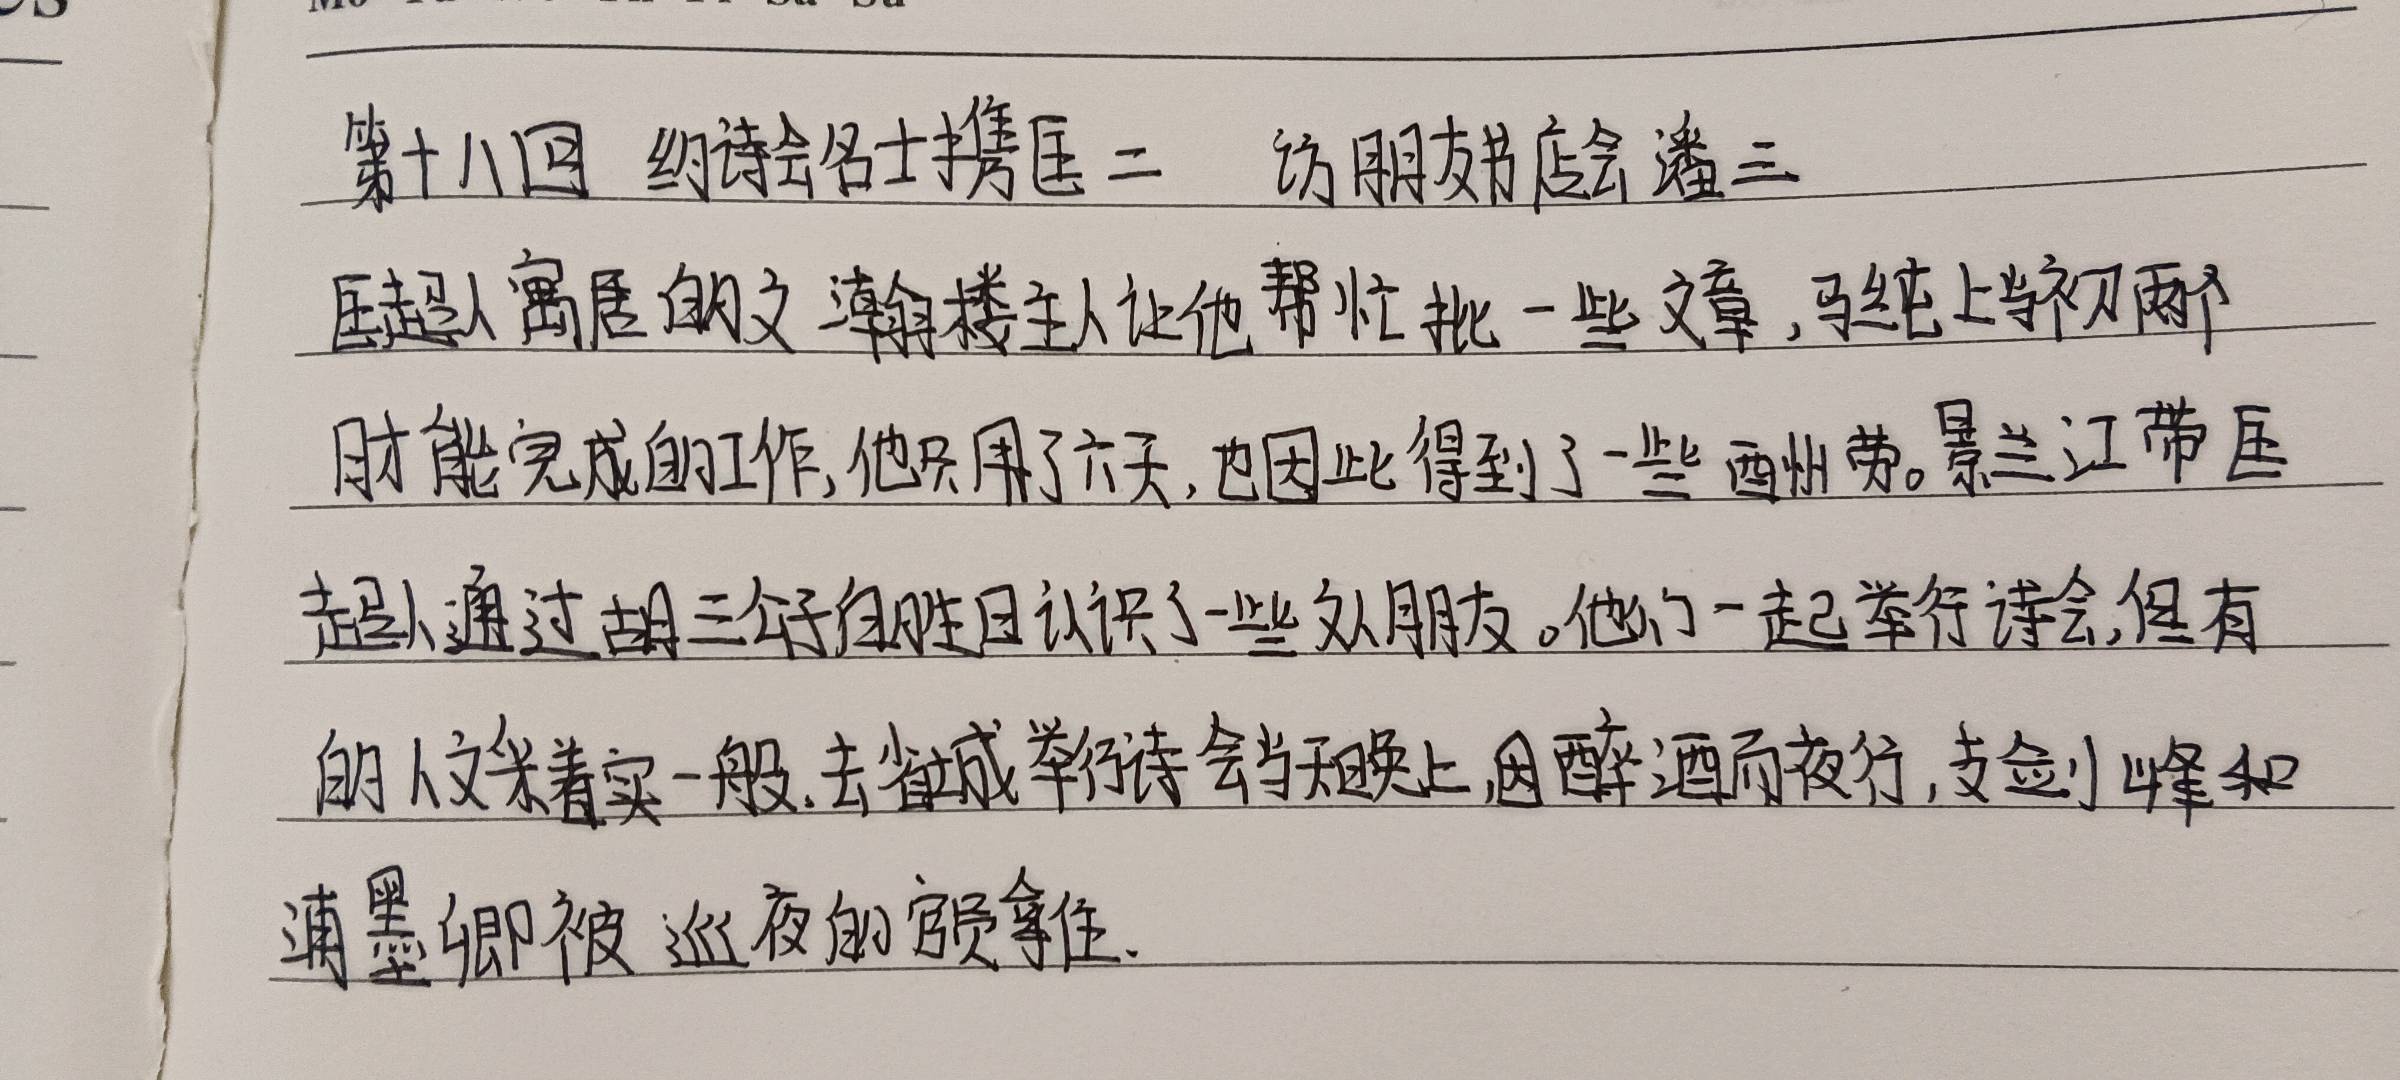 Mo Tu We Th Fr Sa Su
第十八回 约诗会名士携匡二 访朋友书店会潘三
匡超人寓居的文瀚楼主人让他帮忙批一些文章,马纯上当初两个
月才能完成的工作,他只用了六天,也因此得到了一些酬劳。景兰江带匡
超人通过胡三公子的生日认识了一些文人朋友。他们一起举行诗会,但有
的人文采着实一般.去省城举行诗会当天晚上,因醉酒而夜行,支剑峰和
浦墨卿被巡夜的官员拿住.